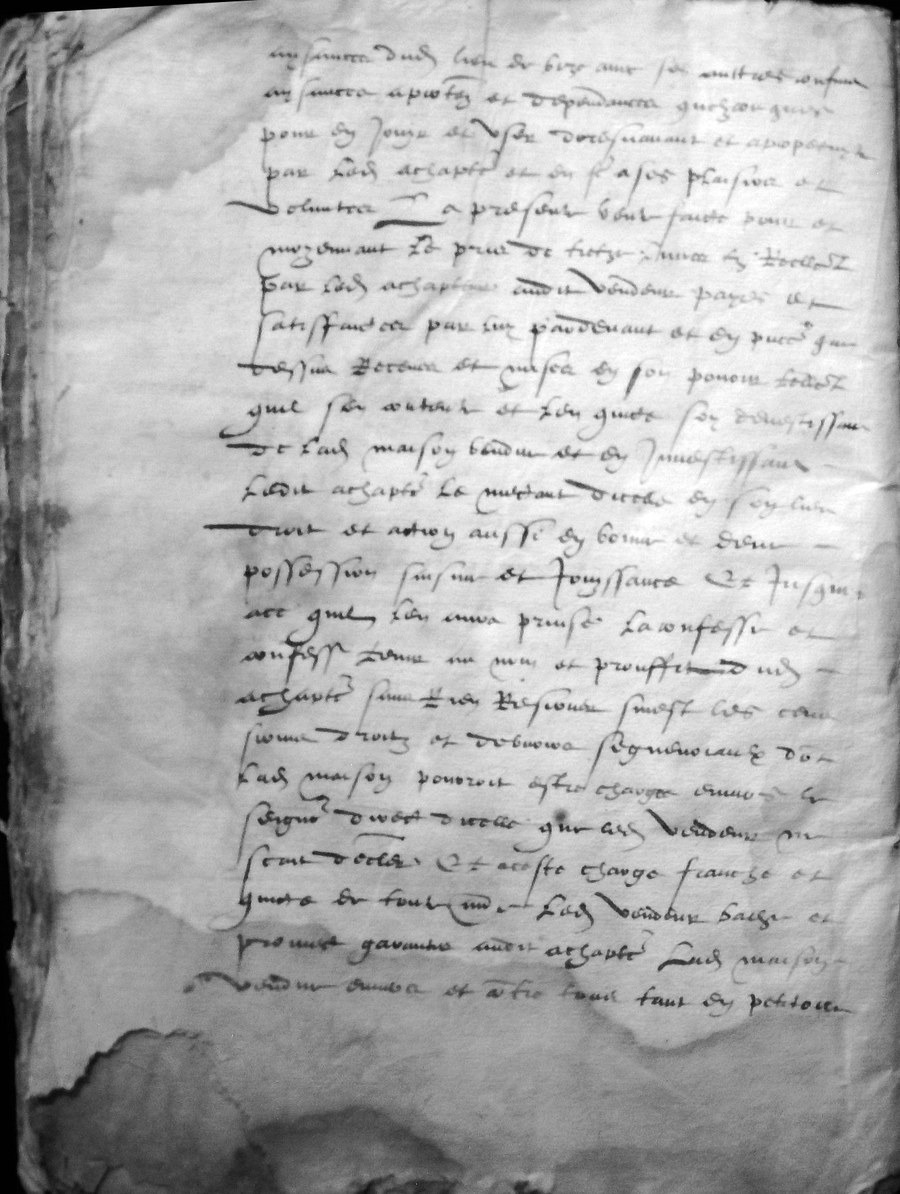 aysances dud lieu de avec ses aultres confrons
aysances appten et deppendances
pour en jouyr et user doresnavant et a perpetuyte
par led achapter et en fe a ses plaisirs et
voluntes La presente vente faicte pour et
moyennant le pris de livres tz
par led achapteur audit vendeur payes et
satisffaictes par luy pardevant et en que
dessus Receues et mises en son pouvoir
quil sen contente et len quicte sen devestissant
de lad maison vendue et en Investissant
Ledit achapter le mectant dicelle en son lieu
droit et action aussi en bonne et deue
possession saisine et Jouyssance Et Jusques
ace quil len aura prinse la confesse et
confesse tenir au nom et prouffit dud
achapter sans Rien Reserver sinest les cens
droitz et debvoirs segneuriaulx dont
Lad maison pouvroit estre chargee envers le
seignr direct dicelle que led vendeur ne
scait declerer Et aceste charge franche et
quicte de tout Led vendeur baille et
promect garantir audit achapter Lad maison
vendue envers et contre tous tant en petitoire